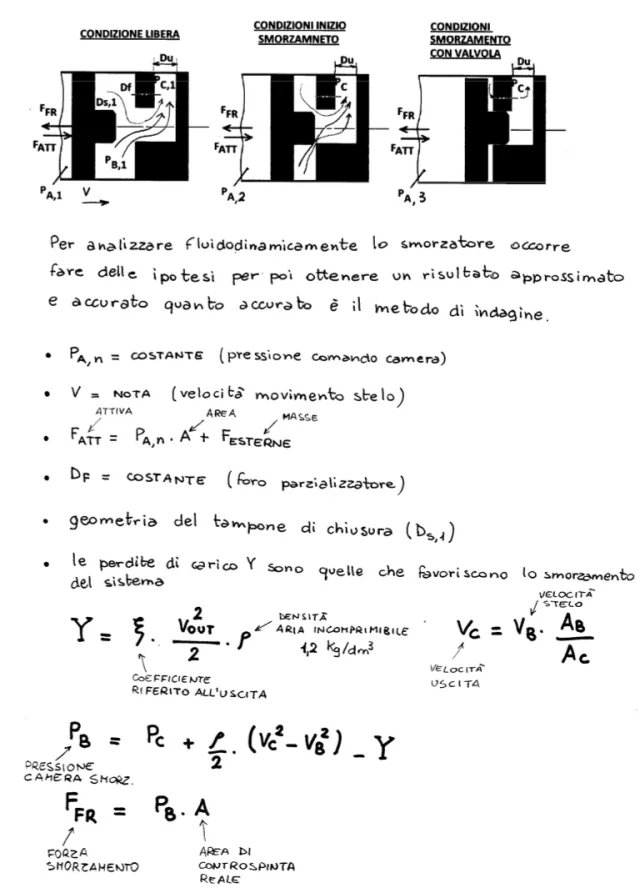 CONDIZIONE LIBERA
CONDIZIONI INIZIO
SMORZAMNETO
CONDIZIONI
SMORZAMENTO
CON VALVOLA
Du
Df
PC,1
Ds,1
FFR
FATT
PB,1
PA,1
V
Du
PC
FFR
FATT
PA,2
Du
PC
FFR
FATT
PA,3
Per analizzare fluidodinamicamente lo smorzatore occorre
fare delle ipotesi per poi ottenere un risultato approssimato
e accurato quanto accurato è il metodo di indagine.
• PA,n = COSTANTE (pressione comando camera)
• V = NOTA (velocità movimento stelo)
ATTIVA AREA MASSE
• FATT = PA,n · A + FESTERNE
• DF = COSTANTE (foro parzializzatore)
• geometria del tampone di chiusura (Ds,1)
• le perdite di carico Y sono quelle che favoriscono lo smorzamento
del sistema
Y = ξ · VOUT² / 2 · ρ
DENSITÀ
ARIA INCOMPRIMIBILE
1,2 kg/dm³
COEFFICIENTE
RIFERITO ALL'USCITA
VELOCITÀ
STELO
VC = VB · AB / AC
VELOCITÀ
USCITA
PB = PC + ρ/2 · (VC² - VB²) - Y
PRESSIONE
CAMERA SMORZ.
FFR = PB · A
FORZA
SMORZAMENTO
AREA DI
CONTROSPINTA
REALE